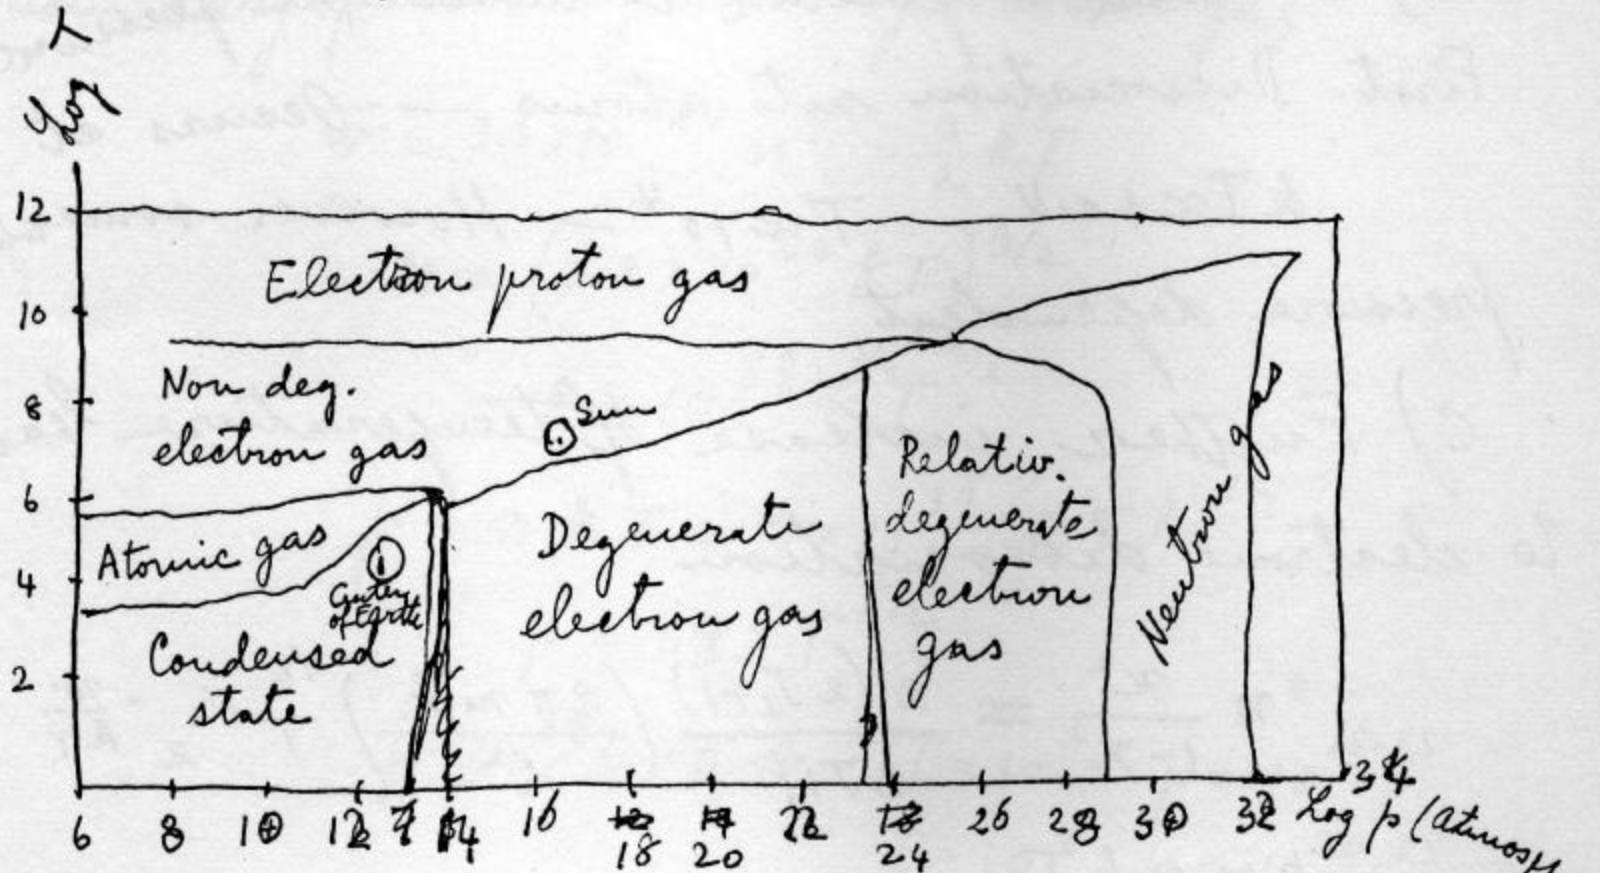 Log T
12
Electron proton gas
10
Non deg.
electron gas
8
Sun
6
Atomic gas
4
Center
of Earth
Condensed
state
2
Degenerate
electron gas
Relativ.
degenerate
electron
gas
Neutron gas
6 8 10 12 14 16 18 20 22 24 26 28 30 32 34
Log p (atmosph